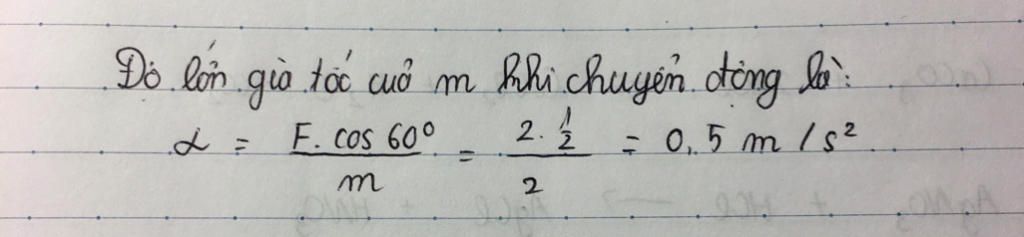 Độ lớn gia tốc của m khi chuyển động là:
a = F. cos 60° / m = 2. 1/2 / 2 = 0,5 m / s²